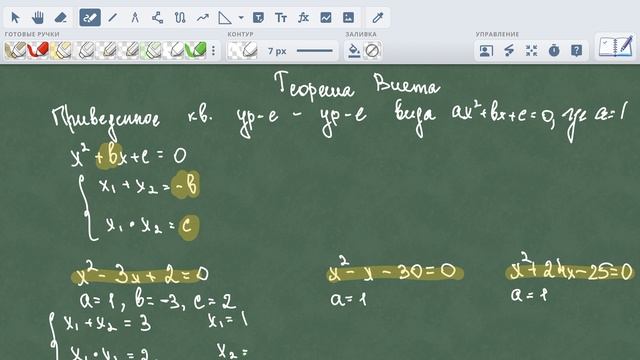 ГОТОВЫЕ РУЧКИ
КОНТУР
7 px
ЗАЛИВКА
УПРАВЛЕНИЕ
Теорема Виета
Приведенное кв. ур-е - ур-е вида ax²+bx+c=0, где a=1
x²+bx+c=0
x₁+x₂=-b
x₁·x₂=c
x²-3x+2=0
a=1, b=-3, c=2
x₁+x₂=3 x₁=1
x₁·x₁=2 x₂=
x²-x-30=0
a=1
x²+24x-25=0
a=1